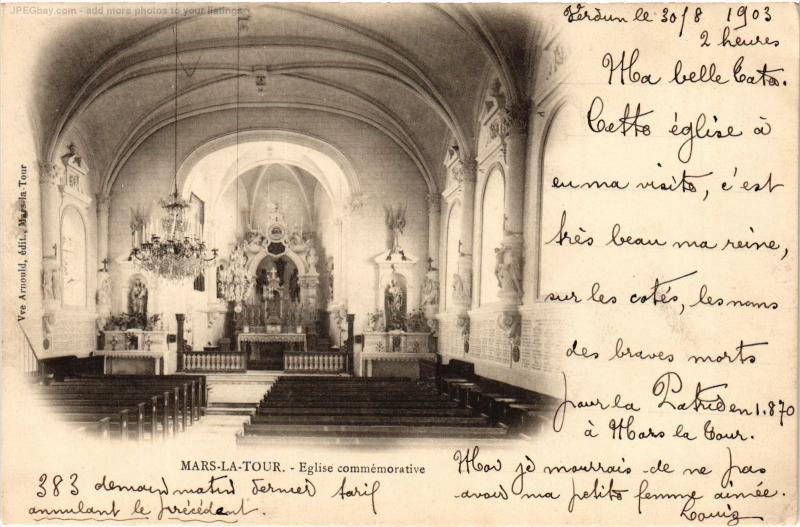 JPEGbay.com - add more photos to your listings
Verdun le 30/8 1903
2 heures
Ma belle Cato.
Cette église à
eu ma visite, c'est
très beau ma reine,
sur les cotés, les noms
des braves morts
pour la Patrie en 1.870
à Mars la Tour.
Moi je mourrais de ne pas
avoir ma petite femme aimée.
Louis
Vve Arnould, édit., Mars-la-Tour
MARS-LA-TOUR. - Eglise commémorative
383 demain matin dernier tarif
annulant le précédent.